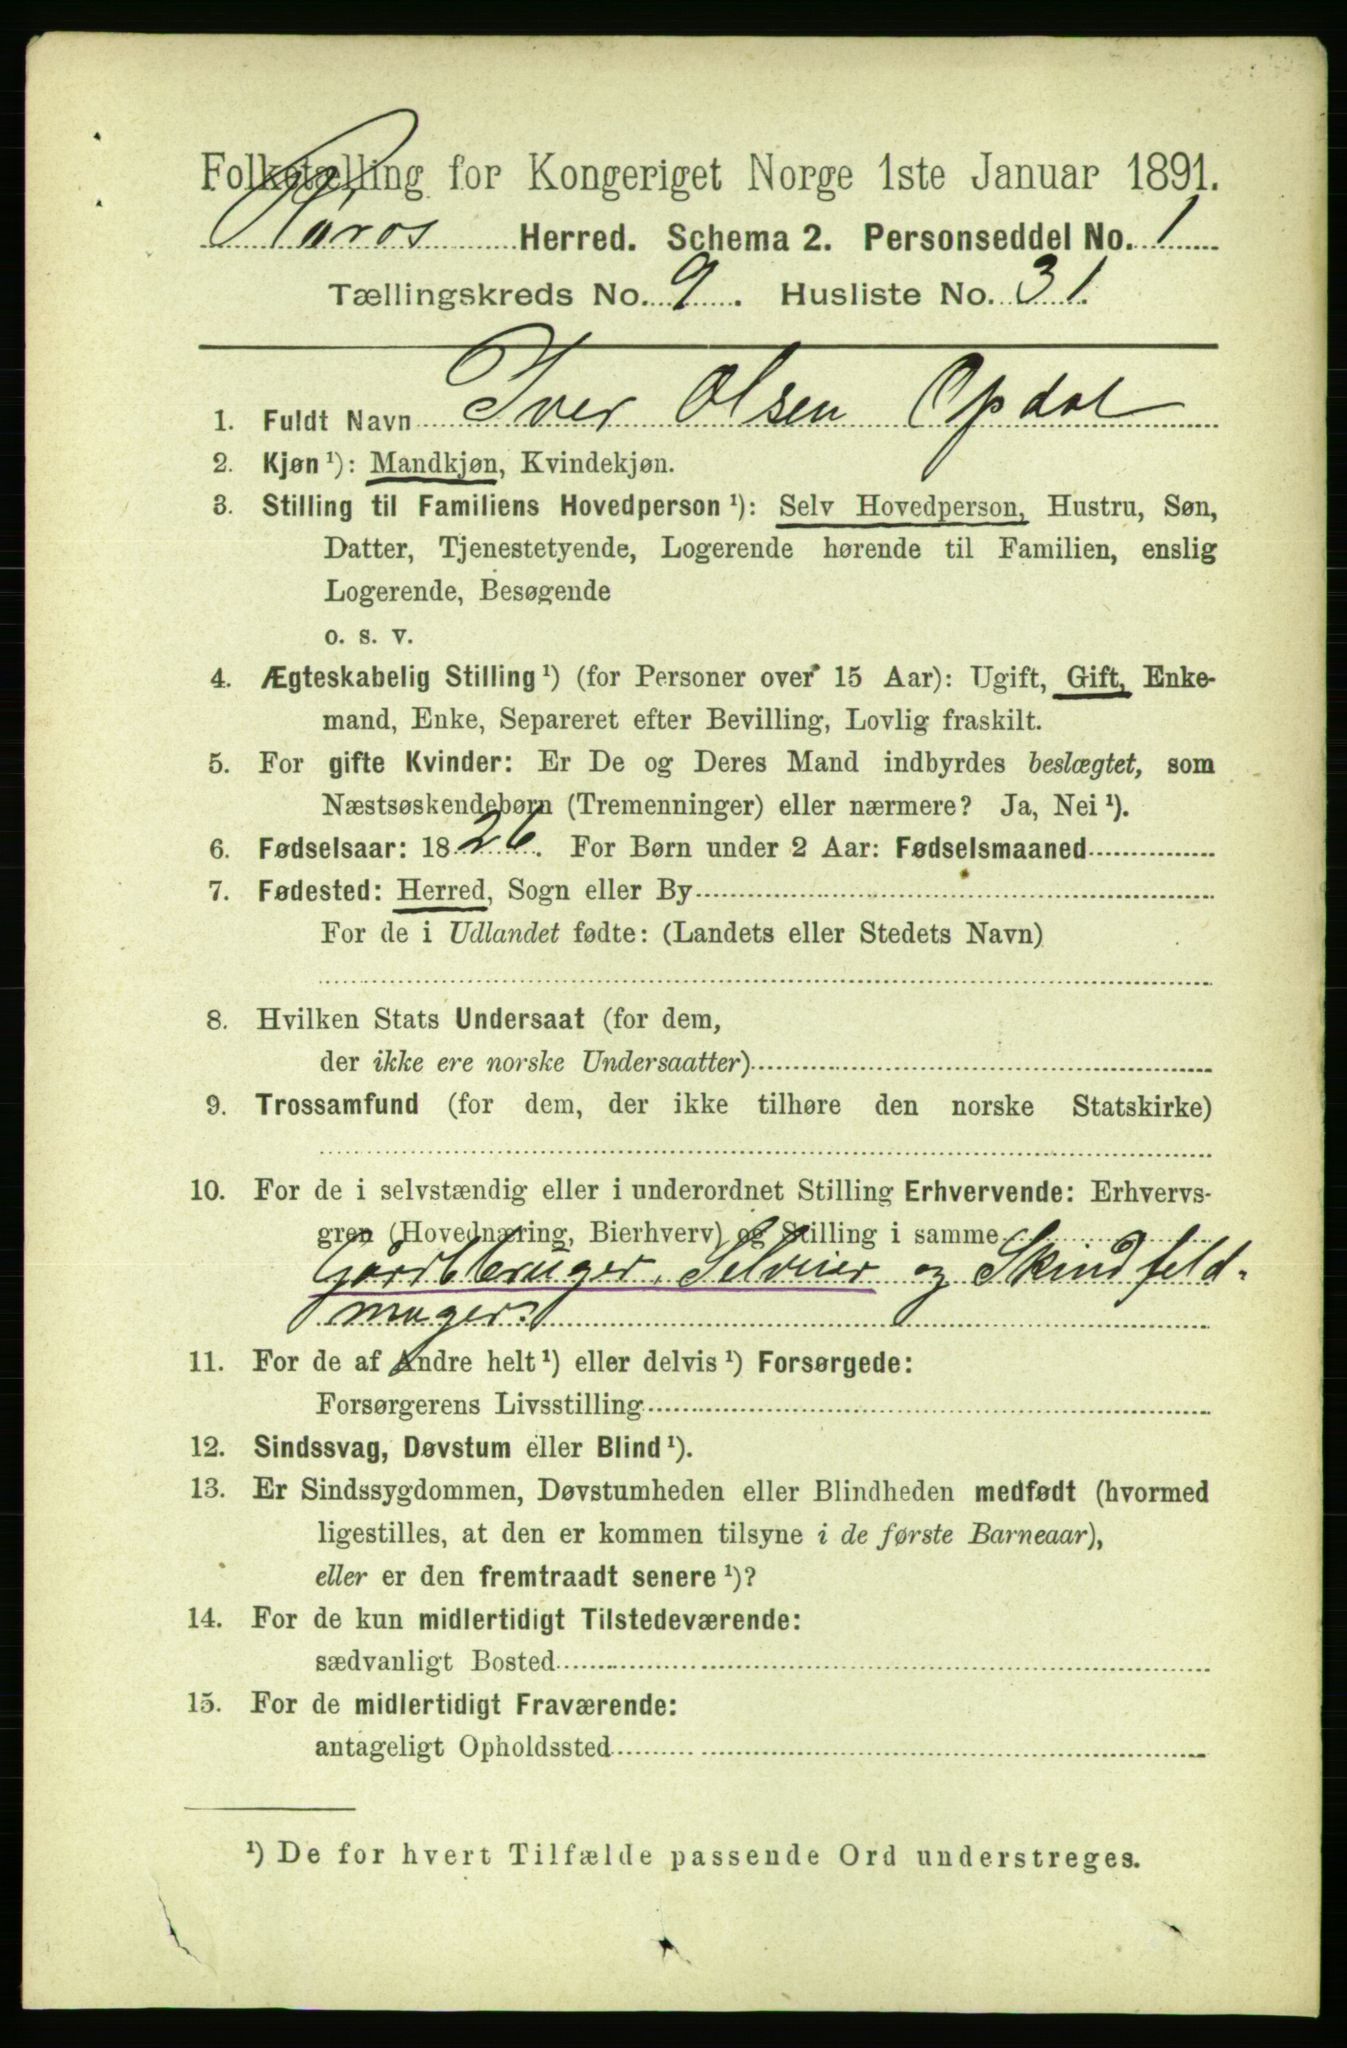 Folketælling for Kongeriget Norge 1ste Januar 1891.
Røros Herred. Schema 2. Personseddel No. 1
Tællingskreds No. 9. Husliste No. 31.
1. Fuldt Navn Iver Olsen Opdal
2. Kjøn ¹): Mandkjøn, Kvindekjøn.
3. Stilling til Familiens Hovedperson ¹): Selv Hovedperson, Hustru, Søn,
Datter, Tjenestetyende, Logerende hørende til Familien, enslig
Logerende, Besøgende
o. s. v.
4. Ægteskabelig Stilling ¹) (for Personer over 15 Aar): Ugift, Gift, Enke-
mand, Enke, Separeret efter Bevilling, Lovlig fraskilt.
5. For gifte Kvinder: Er De og Deres Mand indbyrdes beslægtet, som
Næstsøskendebørn (Tremenninger) eller nærmere? Ja, Nei ¹).
6. Fødselsaar: 1826. For Børn under 2 Aar: Fødselsmaaned
7. Fødested: Herred, Sogn eller By
For de i Udlandet fødte: (Landets eller Stedets Navn)
8. Hvilken Stats Undersaat (for dem,
der ikke ere norske Undersaatter)
9. Trossamfund (for dem, der ikke tilhøre den norske Statskirke)
10. For de i selvstændig eller i underordnet Stilling Erhvervende: Erhvervs-
gren (Hovednæring, Bierhverv) og Stilling i samme
Gårdbruger, Selveier og Skindfeld-
mager.
11. For de af Andre helt ¹) eller delvis ¹) Forsørgede:
Forsørgerens Livsstilling
12. Sindssvag, Døvstum eller Blind ¹).
13. Er Sindssygdommen, Døvstumheden eller Blindheden medfødt (hvormed
ligestilles, at den er kommen tilsyne i de første Barneaar),
eller er den fremtraadt senere ¹)?
14. For de kun midlertidigt Tilstedeværende:
sædvanligt Bosted
15. For de midlertidigt Fraværende:
antageligt Opholdssted
¹) De for hvert Tilfælde passende Ord understreges.